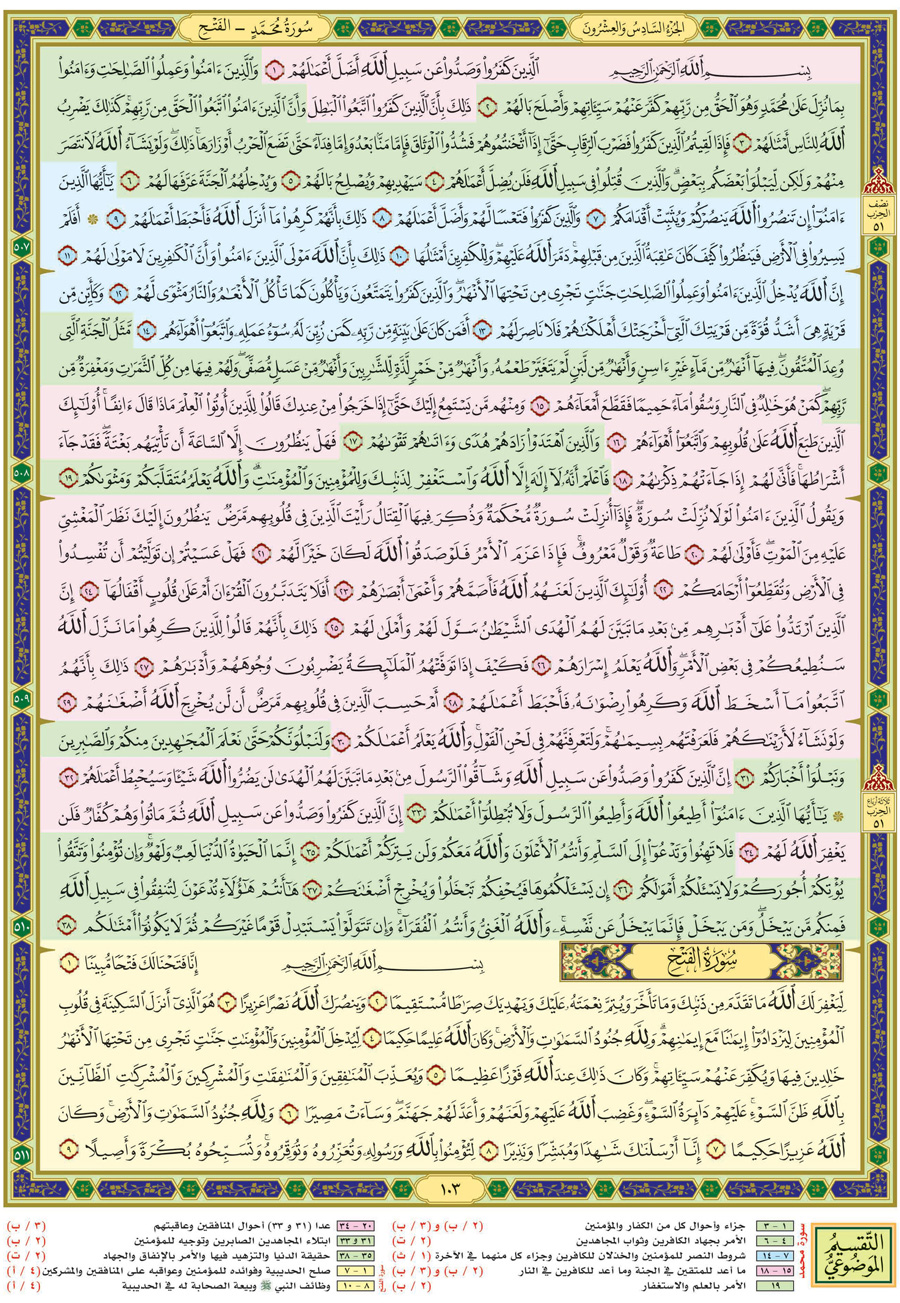 سُورَةُ مُحَمَّدٍ - الفَتْح
الجُزْءُ السَّادِس وَالعِشْرُون
بِسْمِ ٱللَّهِ ٱلرَّحْمَٰنِ ٱلرَّحِيمِ ٱلَّذِينَ كَفَرُوا۟ وَصَدُّوا۟ عَن سَبِيلِ ٱللَّهِ أَضَلَّ أَعْمَٰلَهُمْ ١ وَٱلَّذِينَ ءَامَنُوا۟ وَعَمِلُوا۟ ٱلصَّٰلِحَٰتِ وَءَامَنُوا۟
بِمَا نُزِّلَ عَلَىٰ مُحَمَّدٍ وَهُوَ ٱلْحَقُّ مِن رَّبِّهِمْ كَفَّرَ عَنْهُمْ سَيِّـَٔاتِهِمْ وَأَصْلَحَ بَالَهُمْ ٢ ذَٰلِكَ بِأَنَّ ٱلَّذِينَ كَفَرُوا۟ ٱتَّبَعُوا۟ ٱلْبَٰطِلَ وَأَنَّ ٱلَّذِينَ ءَامَنُوا۟ ٱتَّبَعُوا۟ ٱلْحَقَّ مِن رَّبِّهِمْ كَذَٰلِكَ يَضْرِبُ
ٱللَّهُ لِلنَّاسِ أَمْثَٰلَهُمْ ٣ فَإِذَا لَقِيتُمُ ٱلَّذِينَ كَفَرُوا۟ فَضَرْبَ ٱلرِّقَابِ حَتَّىٰٓ إِذَآ أَثْخَنتُمُوهُمْ فَشُدُّوا۟ ٱلْوَثَاقَ فَإِمَّا مَنًّۢا بَعْدُ وَإِمَّا فِدَآءً حَتَّىٰ تَضَعَ ٱلْحَرْبُ أَوْزَارَهَا ذَٰلِكَ وَلَوْ يَشَآءُ ٱللَّهُ لَٱنتَصَرَ
مِنْهُمْ وَلَٰكِن لِّيَبْلُوَا۟ بَعْضَكُم بِبَعْضٍ وَٱلَّذِينَ قُتِلُوا۟ فِى سَبِيلِ ٱللَّهِ فَلَن يُضِلَّ أَعْمَٰلَهُمْ ٤ سَيَهْدِيهِمْ وَيُصْلِحُ بَالَهُمْ ٥ وَيُدْخِلُهُمُ ٱلْجَنَّةَ عَرَّفَهَا لَهُمْ ٦ يَٰٓأَيُّهَا ٱلَّذِينَ
ءَامَنُوٓا۟ إِن تَنصُرُوا۟ ٱللَّهَ يَنصُرْكُمْ وَيُثَبِّتْ أَقْدَامَكُمْ ٧ وَٱلَّذِينَ كَفَرُوا۟ فَتَعْسًا لَّهُمْ وَأَضَلَّ أَعْمَٰلَهُمْ ٨ ذَٰلِكَ بِأَنَّهُمْ كَرِهُوا۟ مَآ أَنزَلَ ٱللَّهُ فَأَحْبَطَ أَعْمَٰلَهُمْ ٩ ۞ أَفَلَمْ
يَسِيرُوا۟ فِى ٱلْأَرْضِ فَيَنظُرُوا۟ كَيْفَ كَانَ عَٰقِبَةُ ٱلَّذِينَ مِن قَبْلِهِمْ دَمَّرَ ٱللَّهُ عَلَيْهِمْ وَلِلْكَٰفِرِينَ أَمْثَٰلُهَا ١٠ ذَٰلِكَ بِأَنَّ ٱللَّهَ مَوْلَى ٱلَّذِينَ ءَامَنُوا۟ وَأَنَّ ٱلْكَٰفِرِينَ لَا مَوْلَىٰ لَهُمْ ١١
إِنَّ ٱللَّهَ يُدْخِلُ ٱلَّذِينَ ءَامَنُوا۟ وَعَمِلُوا۟ ٱلصَّٰلِحَٰتِ جَنَّٰتٍ تَجْرِى مِن تَحْتِهَا ٱلْأَنْهَٰرُ وَٱلَّذِينَ كَفَرُوا۟ يَتَمَتَّعُونَ وَيَأْكُلُونَ كَمَا تَأْكُلُ ٱلْأَنْعَٰمُ وَٱلنَّارُ مَثْوًى لَّهُمْ ١٢ وَكَأَيِّن مِّن
قَرْيَةٍ هِىَ أَشَدُّ قُوَّةً مِّن قَرْيَتِكَ ٱلَّتِىٓ أَخْرَجَتْكَ أَهْلَكْنَٰهُمْ فَلَا نَاصِرَ لَهُمْ ١٣ أَفَمَن كَانَ عَلَىٰ بَيِّنَةٍ مِّن رَّبِّهِۦ كَمَن زُيِّنَ لَهُۥ سُوٓءُ عَمَلِهِۦ وَٱتَّبَعُوٓا۟ أَهْوَآءَهُم ١٤ مَّثَلُ ٱلْجَنَّةِ ٱلَّتِى
وُعِدَ ٱلْمُتَّقُونَ فِيهَآ أَنْهَٰرٌ مِّن مَّآءٍ غَيْرِ ءَاسِنٍ وَأَنْهَٰرٌ مِّن لَّبَنٍ لَّمْ يَتَغَيَّرْ طَعْمُهُۥ وَأَنْهَٰرٌ مِّنْ خَمْرٍ لَّذَّةٍ لِّلشَّٰرِبِينَ وَأَنْهَٰرٌ مِّنْ عَسَلٍ مُّصَفًّى وَلَهُمْ فِيهَا مِن كُلِّ ٱلثَّمَرَٰتِ وَمَغْفِرَةٌ مِّن
رَّبِّهِمْ كَمَنْ هُوَ خَٰلِدٌ فِى ٱلنَّارِ وَسُقُوا۟ مَآءً حَمِيمًا فَقَطَّعَ أَمْعَآءَهُمْ ١٥ وَمِنْهُم مَّن يَسْتَمِعُ إِلَيْكَ حَتَّىٰٓ إِذَا خَرَجُوا۟ مِنْ عِندِكَ قَالُوا۟ لِلَّذِينَ أُوتُوا۟ ٱلْعِلْمَ مَاذَا قَالَ ءَانِفًا أُو۟لَٰٓئِكَ
ٱلَّذِينَ طَبَعَ ٱللَّهُ عَلَىٰ قُلُوبِهِمْ وَٱتَّبَعُوٓا۟ أَهْوَآءَهُمْ ١٦ وَٱلَّذِينَ ٱهْتَدَوْا۟ زَادَهُمْ هُدًى وَءَاتَىٰهُمْ تَقْوَىٰهُمْ ١٧ فَهَلْ يَنظُرُونَ إِلَّا ٱلسَّاعَةَ أَن تَأْتِيَهُم بَغْتَةً فَقَدْ جَآءَ
أَشْرَاطُهَا فَأَنَّىٰ لَهُمْ إِذَا جَآءَتْهُمْ ذِكْرَىٰهُمْ ١٨ فَٱعْلَمْ أَنَّهُۥ لَآ إِلَٰهَ إِلَّا ٱللَّهُ وَٱسْتَغْفِرْ لِذَنۢبِكَ وَلِلْمُؤْمِنِينَ وَٱلْمُؤْمِنَٰتِ وَٱللَّهُ يَعْلَمُ مُتَقَلَّبَكُمْ وَمَثْوَىٰكُمْ ١٩
وَيَقُولُ ٱلَّذِينَ ءَامَنُوا۟ لَوْلَا نُزِّلَتْ سُورَةٌ فَإِذَآ أُنزِلَتْ سُورَةٌ مُّحْكَمَةٌ وَذُكِرَ فِيهَا ٱلْقِتَالُ رَأَيْتَ ٱلَّذِينَ فِى قُلُوبِهِم مَّرَضٌ يَنظُرُونَ إِلَيْكَ نَظَرَ ٱلْمَغْشِىِّ
عَلَيْهِ مِنَ ٱلْمَوْتِ فَأَوْلَىٰ لَهُمْ ٢٠ طَاعَةٌ وَقَوْلٌ مَّعْرُوفٌ فَإِذَا عَزَمَ ٱلْأَمْرُ فَلَوْ صَدَقُوا۟ ٱللَّهَ لَكَانَ خَيْرًا لَّهُمْ ٢١ فَهَلْ عَسَيْتُمْ إِن تَوَلَّيْتُمْ أَن تُفْسِدُوا۟
فِى ٱلْأَرْضِ وَتُقَطِّعُوٓا۟ أَرْحَامَكُمْ ٢٢ أُو۟لَٰٓئِكَ ٱلَّذِينَ لَعَنَهُمُ ٱللَّهُ فَأَصَمَّهُمْ وَأَعْمَىٰٓ أَبْصَٰرَهُمْ ٢٣ أَفَلَا يَتَدَبَّرُونَ ٱلْقُرْءَانَ أَمْ عَلَىٰ قُلُوبٍ أَقْفَالُهَآ ٢٤ إِنَّ
ٱلَّذِينَ ٱرْتَدُّوا۟ عَلَىٰٓ أَدْبَٰرِهِم مِّنۢ بَعْدِ مَا تَبَيَّنَ لَهُمُ ٱلْهُدَى ٱلشَّيْطَٰنُ سَوَّلَ لَهُمْ وَأَمْلَىٰ لَهُمْ ٢٥ ذَٰلِكَ بِأَنَّهُمْ قَالُوا۟ لِلَّذِينَ كَرِهُوا۟ مَا نَزَّلَ ٱللَّهُ
سَنُطِيعُكُمْ فِى بَعْضِ ٱلْأَمْرِ وَٱللَّهُ يَعْلَمُ إِسْرَارَهُمْ ٢٦ فَكَيْفَ إِذَا تَوَفَّتْهُمُ ٱلْمَلَٰٓئِكَةُ يَضْرِبُونَ وُجُوهَهُمْ وَأَدْبَٰرَهُمْ ٢٧ ذَٰلِكَ بِأَنَّهُمُ
ٱتَّبَعُوا۟ مَآ أَسْخَطَ ٱللَّهَ وَكَرِهُوا۟ رِضْوَٰنَهُۥ فَأَحْبَطَ أَعْمَٰلَهُمْ ٢٨ أَمْ حَسِبَ ٱلَّذِينَ فِى قُلُوبِهِم مَّرَضٌ أَن لَّن يُخْرِجَ ٱللَّهُ أَضْغَٰنَهُمْ ٢٩
وَلَوْ نَشَآءُ لَأَرَيْنَٰكَهُمْ فَلَعَرَفْتَهُم بِسِيمَٰهُمْ وَلَتَعْرِفَنَّهُمْ فِى لَحْنِ ٱلْقَوْلِ وَٱللَّهُ يَعْلَمُ أَعْمَٰلَكُمْ ٣٠ وَلَنَبْلُوَنَّكُمْ حَتَّىٰ نَعْلَمَ ٱلْمُجَٰهِدِينَ مِنكُمْ وَٱلصَّٰبِرِينَ
وَنَبْلُوَا۟ أَخْبَارَكُمْ ٣١ إِنَّ ٱلَّذِينَ كَفَرُوا۟ وَصَدُّوا۟ عَن سَبِيلِ ٱللَّهِ وَشَآقُّوا۟ ٱلرَّسُولَ مِنۢ بَعْدِ مَا تَبَيَّنَ لَهُمُ ٱلْهُدَىٰ لَن يَضُرُّوا۟ ٱللَّهَ شَيْـًٔا وَسَيُحْبِطُ أَعْمَٰلَهُمْ ٣٢
۞ يَٰٓأَيُّهَا ٱلَّذِينَ ءَامَنُوٓا۟ أَطِيعُوا۟ ٱللَّهَ وَأَطِيعُوا۟ ٱلرَّسُولَ وَلَا تُبْطِلُوٓا۟ أَعْمَٰلَكُمْ ٣٣ إِنَّ ٱلَّذِينَ كَفَرُوا۟ وَصَدُّوا۟ عَن سَبِيلِ ٱللَّهِ ثُمَّ مَاتُوا۟ وَهُمْ كُفَّارٌ فَلَن
يَغْفِرَ ٱللَّهُ لَهُمْ ٣٤ فَلَا تَهِنُوا۟ وَتَدْعُوٓا۟ إِلَى ٱلسَّلْمِ وَأَنتُمُ ٱلْأَعْلَوْنَ وَٱللَّهُ مَعَكُمْ وَلَن يَتِرَكُمْ أَعْمَٰلَكُمْ ٣٥ إِنَّمَا ٱلْحَيَوٰةُ ٱلدُّنْيَا لَعِبٌ وَلَهْوٌ وَإِن تُؤْمِنُوا۟ وَتَتَّقُوا۟
يُؤْتِكُمْ أُجُورَكُمْ وَلَا يَسْـَٔلْكُمْ أَمْوَٰلَكُمْ ٣٦ إِن يَسْـَٔلْكُمُوهَا فَيُحْفِكُمْ تَبْخَلُوا۟ وَيُخْرِجْ أَضْغَٰنَكُمْ ٣٧ هَٰٓأَنتُمْ هَٰٓؤُلَآءِ تُدْعَوْنَ لِتُنفِقُوا۟ فِى سَبِيلِ ٱللَّهِ
فَمِنكُم مَّن يَبْخَلُ وَمَن يَبْخَلْ فَإِنَّمَا يَبْخَلُ عَن نَّفْسِهِۦ وَٱللَّهُ ٱلْغَنِىُّ وَأَنتُمُ ٱلْفُقَرَآءُ وَإِن تَتَوَلَّوْا۟ يَسْتَبْدِلْ قَوْمًا غَيْرَكُمْ ثُمَّ لَا يَكُونُوٓا۟ أَمْثَٰلَكُم ٣٨
سُورَةُ الفَتْحِ بِسْمِ ٱللَّهِ ٱلرَّحْمَٰنِ ٱلرَّحِيمِ إِنَّا فَتَحْنَا لَكَ فَتْحًا مُّبِينًا ١
لِّيَغْفِرَ لَكَ ٱللَّهُ مَا تَقَدَّمَ مِن ذَنۢبِكَ وَمَا تَأَخَّرَ وَيُتِمَّ نِعْمَتَهُۥ عَلَيْكَ وَيَهْدِيَكَ صِرَٰطًا مُّسْتَقِيمًا ٢ وَيَنصُرَكَ ٱللَّهُ نَصْرًا عَزِيزًا ٣ هُوَ ٱلَّذِىٓ أَنزَلَ ٱلسَّكِينَةَ فِى قُلُوبِ
ٱلْمُؤْمِنِينَ لِيَزْدَادُوٓا۟ إِيمَٰنًا مَّعَ إِيمَٰنِهِمْ وَلِلَّهِ جُنُودُ ٱلسَّمَٰوَٰتِ وَٱلْأَرْضِ وَكَانَ ٱللَّهُ عَلِيمًا حَكِيمًا ٤ لِّيُدْخِلَ ٱلْمُؤْمِنِينَ وَٱلْمُؤْمِنَٰتِ جَنَّٰتٍ تَجْرِى مِن تَحْتِهَا ٱلْأَنْهَٰرُ
خَٰلِدِينَ فِيهَا وَيُكَفِّرَ عَنْهُمْ سَيِّـَٔاتِهِمْ وَكَانَ ذَٰلِكَ عِندَ ٱللَّهِ فَوْزًا عَظِيمًا ٥ وَيُعَذِّبَ ٱلْمُنَٰفِقِينَ وَٱلْمُنَٰفِقَٰتِ وَٱلْمُشْرِكِينَ وَٱلْمُشْرِكَٰتِ ٱلظَّآنِّينَ
بِٱللَّهِ ظَنَّ ٱلسَّوْءِ عَلَيْهِمْ دَآئِرَةُ ٱلسَّوْءِ وَغَضِبَ ٱللَّهُ عَلَيْهِمْ وَلَعَنَهُمْ وَأَعَدَّ لَهُمْ جَهَنَّمَ وَسَآءَتْ مَصِيرًا ٦ وَلِلَّهِ جُنُودُ ٱلسَّمَٰوَٰتِ وَٱلْأَرْضِ وَكَانَ
ٱللَّهُ عَزِيزًا حَكِيمًا ٧ إِنَّآ أَرْسَلْنَٰكَ شَٰهِدًا وَمُبَشِّرًا وَنَذِيرًا ٨ لِّتُؤْمِنُوا۟ بِٱللَّهِ وَرَسُولِهِۦ وَتُعَزِّرُوهُ وَتُوَقِّرُوهُ وَتُسَبِّحُوهُ بُكْرَةً وَأَصِيلًا ٩
نصف الحزب ٥١
ثلاثة أرباع الحزب ٥١
٥٠٧
٥٠٨
٥٠٩
٥١٠
٥١١
١٠٣
التَّقسِيمُ المَوْضُوعِيُّ
سورة محمد
١ - ٣ جزاء وأحوال كل من الكفار والمؤمنين (٢ / ب) و (٣ / ب)
٤ - ٦ الأمر بجهاد الكافرين وثواب المجاهدين (٢ / ت)
٧ - ١٤ شروط النصر للمؤمنين والخذلان للكافرين وجزاء كل منهما في الآخرة (١ / ث)
١٥ - ١٨ ما أعد للمتقين في الجنة وما أعد للكافرين في النار (٢ / ب) و (٣ / ب)
١٩ الأمر بالعلم والاستغفار (٢ / ب)
٢٠ - ٣٤ عدا (٣١ و ٣٣) أحوال المنافقين وعواقبهم (٣ / ب)
٣١ و ٣٣ ابتلاء المجاهدين الصابرين وتوجيه للمؤمنين (٢ / ب)
٣٥ - ٣٨ حقيقة الدنيا والتزهيد فيها والأمر بالإنفاق والجهاد (٢ / ت)
١ - ٧ صلح الحديبية وفوائده للمؤمنين وعواقبه على المنافقين والمشركين (٤ / أ)
٨ - ١٠ وظائف النبي ﷺ وبيعة الصحابة له في الحديبية (٤ / أ)